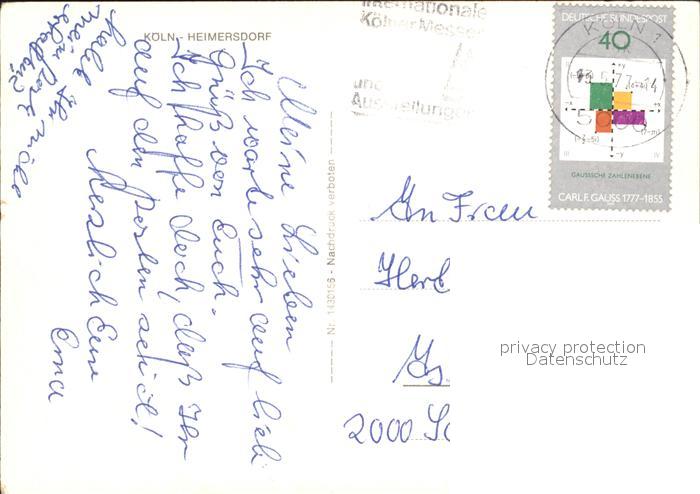 KÖLN - HEIMERSDORF
Meine Lieben
Ich warte sehr auf lieb
Grüß von Euch.
Ich hoffe doch, daß Ihr
auf dem Posten seid!
Herzlich Eure
Oma
habt Ihr
mein
Nr. 1430156 - Nachdruck verboten
Internationale
Kölner Messen
und
Ausstellungen
DEUTSCHE BUNDESPOST
40
KÖLN 7
13.5.77-14
5000
+y
-x
+x
-y
III
IV
GAUSSSCHE ZAHLENEBENE
CARL F. GAUSS 1777-1855
An Frau
Herb
2000 Sc
privacy protection
Datenschutz